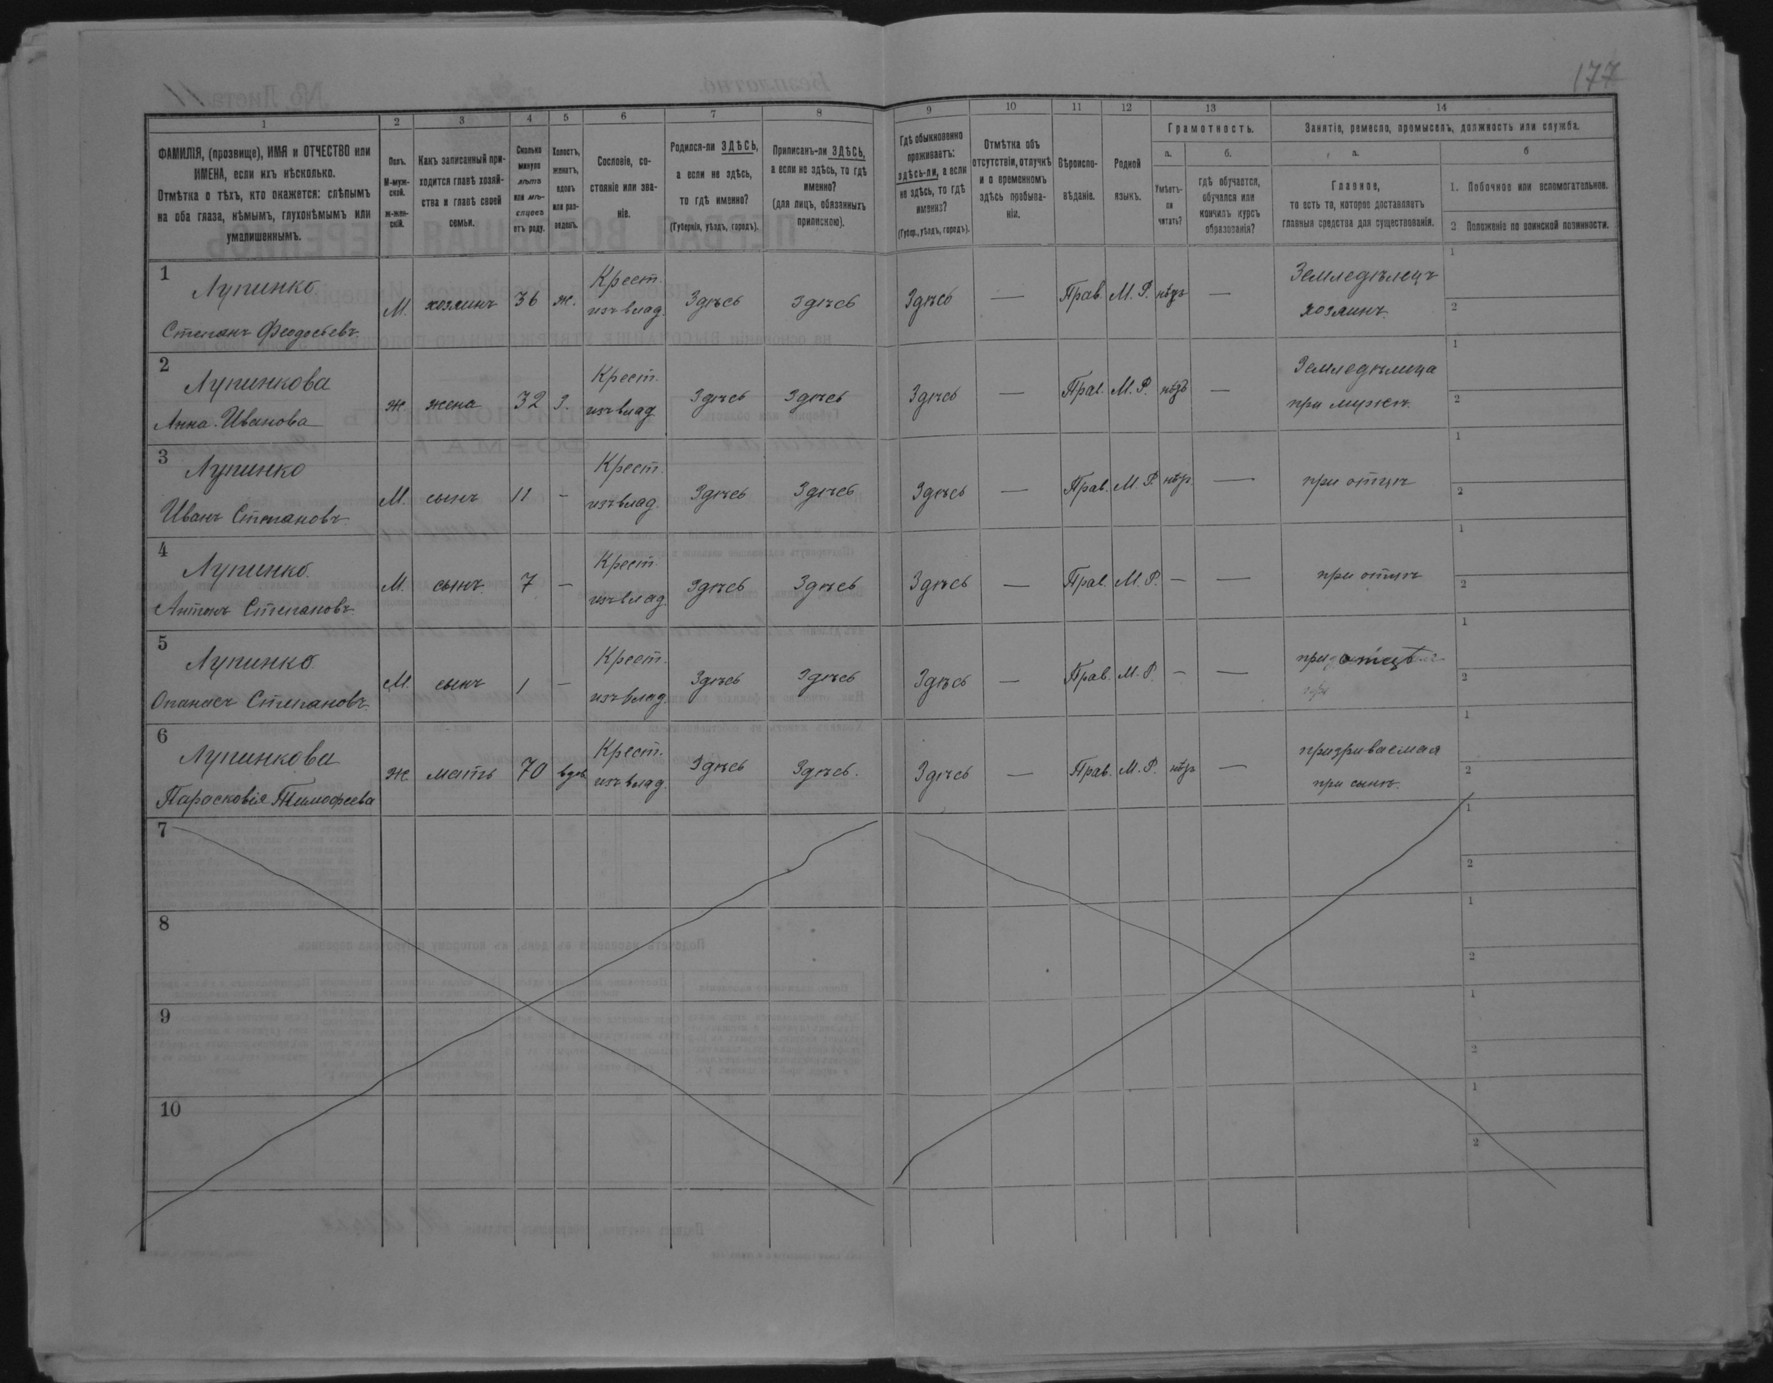 177
1 2 3 4 5 6 7 8 9 10 11 12 13 14
ФАМИЛІЯ, (прозвище), ИМЯ и ОТЧЕСТВО или
ИМЕНА, если ихъ нѣсколько.
Отмѣтка о тѣхъ, кто окажется: слѣпымъ
на оба глаза, нѣмымъ, глухонѣмымъ или
умалишеннымъ.
Полъ.
М-муж-
ской.
ж-жен-
скій.
Какъ записанный при-
ходится главѣ хозяй-
ства и главѣ своей
семьи.
Сколько
минуло
лѣтъ
или мѣ-
сяцевъ
отъ роду.
Холостъ,
женатъ,
вдовъ
или раз-
веденъ.
Сословіе, со-
стояніе или зва-
ніе.
Родился-ли ЗДѢСЬ,
а если не здѣсь,
то гдѣ именно?
(Губернія, уѣздъ, городъ).
Приписанъ-ли ЗДѢСЬ,
а если не здѣсь, то гдѣ
именно?
(для лицъ, обязанныхъ
припискою).
Гдѣ обыкновенно
проживаетъ:
здѣсь-ли, а если
не здѣсь, то гдѣ
именно?
(Губер., уѣздъ, городъ).
Отмѣтка объ
отсутствіи, отлучкѣ
и о временномъ
здѣсь пребыва-
ніи.
Вѣроиспо-
вѣданіе.
Родной
языкъ.
Грамотность.
а.
Умѣетъ-
ли
читать?
б.
гдѣ обучается,
обучался или
кончилъ курсъ
образованія?
Занятіе, ремесло, промыселъ, должность или служба.
а.
Главное,
то есть то, которое доставляетъ
главныя средства для существованія.
б
1. Побочное или вспомогательное.
2 Положеніе по воинской повинности.
1 Лупинко Степанъ Феодосьевъ М. хозяинъ 36 ж. Крест. изъ влад. Здѣсь Здѣсь Здѣсь — Прав. М. Р. нѣтъ — Земледѣлецъ хозяинъ. 1 2
2 Лупинкова Анна Иванова ж жена 32 з. Крест. изъ влад Здѣсь Здѣсь Здѣсь — Прав. М. Р. нѣтъ — Земледѣлица при мужѣ. 1 2
3 Лупинко Иванъ Степановъ М. сынъ 11 – Крест. изъ влад. Здѣсь Здѣсь Здѣсь — Прав. М. Р. нѣтъ — при отцѣ 1 2
4 Лупинко. Антонъ Степановъ. М. сынъ. 7 – Крест. изъ влад Здѣсь Здѣсь Здѣсь — Прав. М. Р. – — при отцѣ 1 2
5 Лупинко Опанасъ Степановъ. М. сынъ 1 – Крест. изъ влад. Здѣсь Здѣсь Здѣсь — Прав. М. Р. – — при отцѣ 1 2
6 Лупинкова Парасковія Тимофеева ж мать 70 вдов. Крест. изъ влад. Здѣсь Здѣсь. Здѣсь — Прав. М. Р. нѣтъ — призриваемая при сынѣ. 1 2
7 1 2
8 1 2
9 1 2
10 1 2